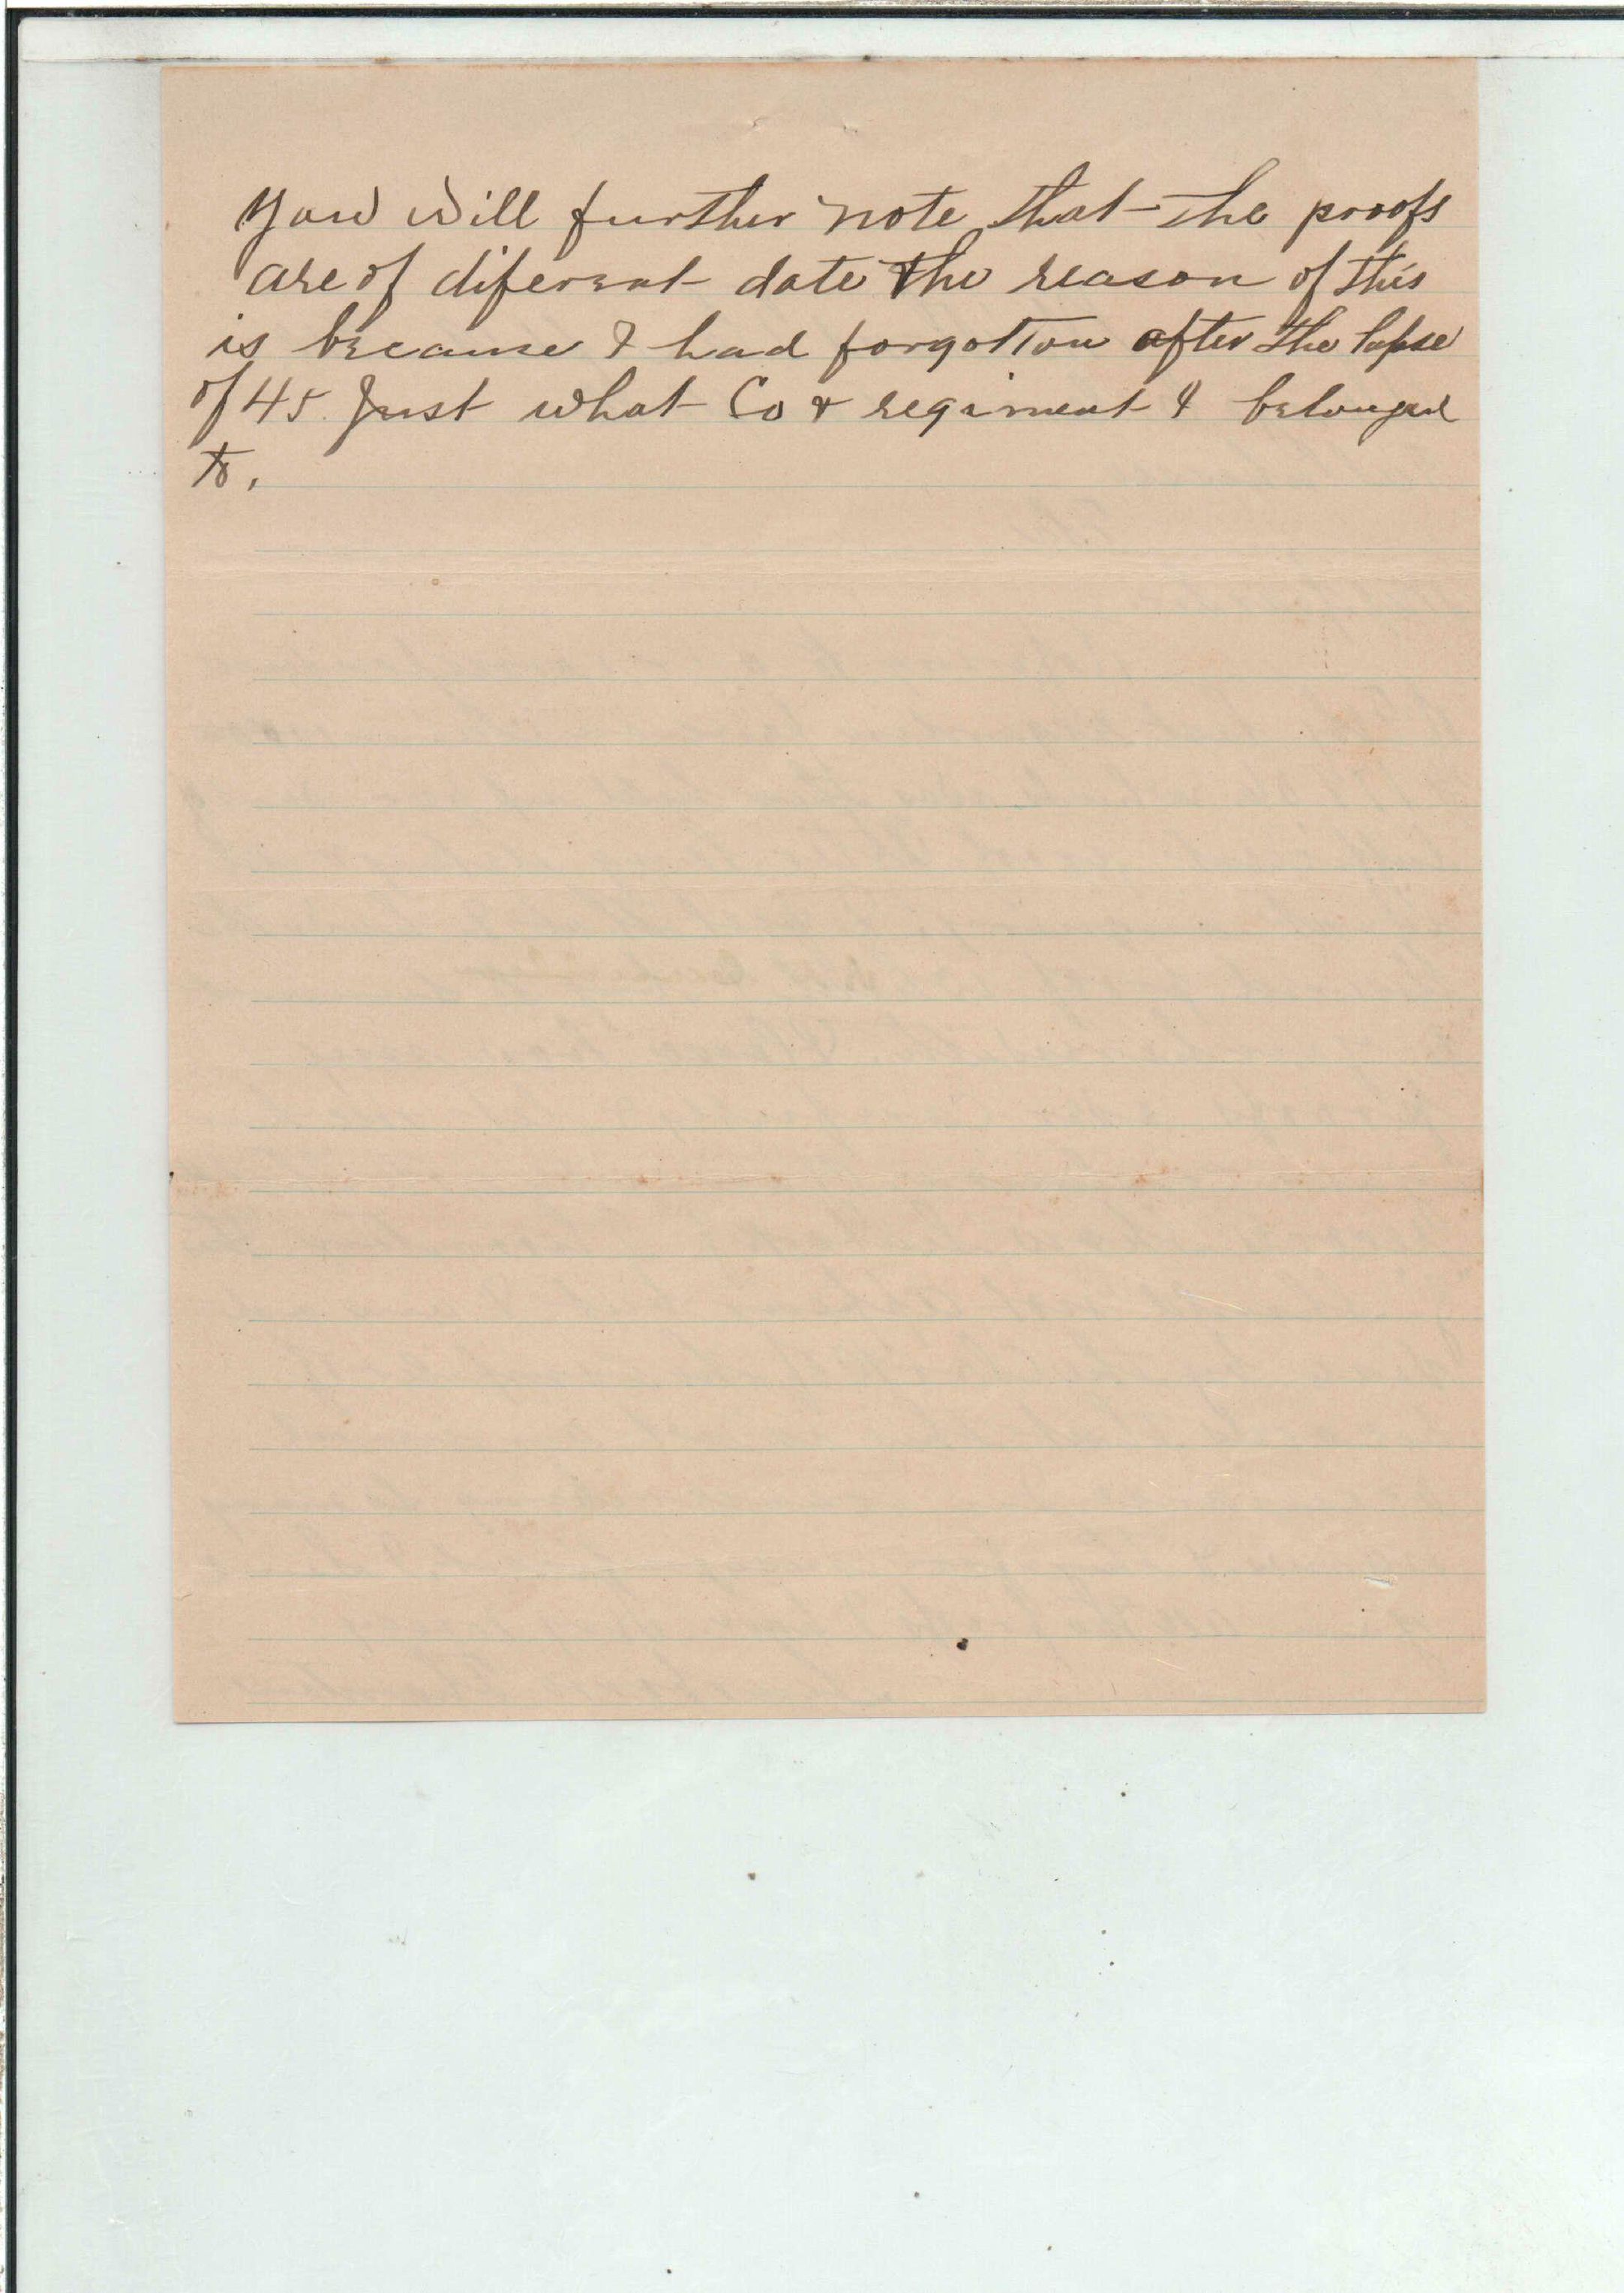 You will further note that the proofs
are of diferent date the reason of this
is because I had forgotton after the lapse
of 45 Just what Co & regiment I belonged
to.